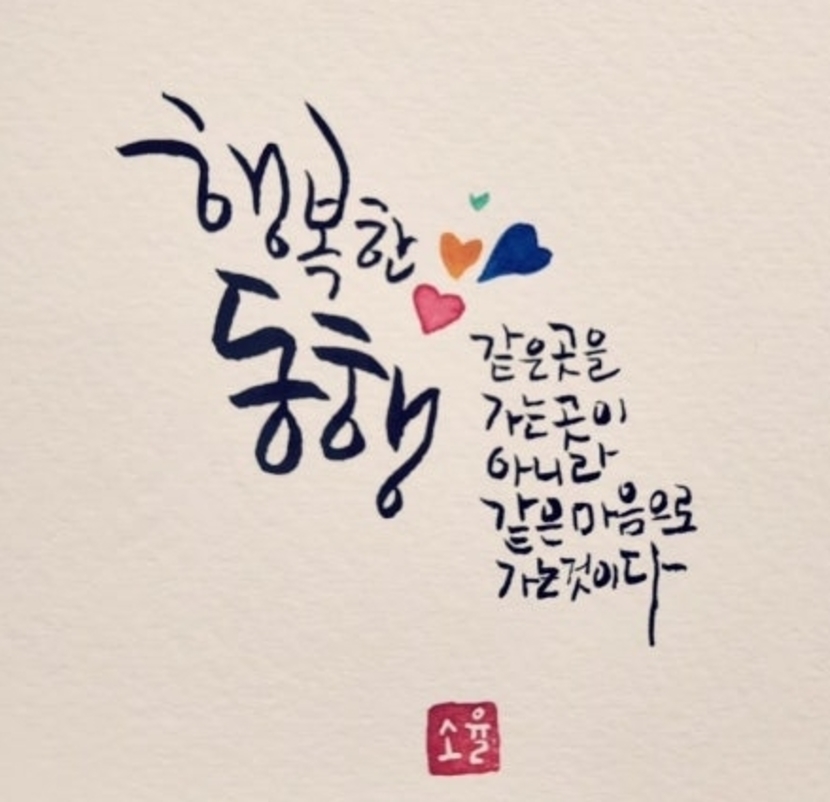 행복한
동행
같은곳을
가는곳이
아니라
같은마음으로
가는것이다
소율